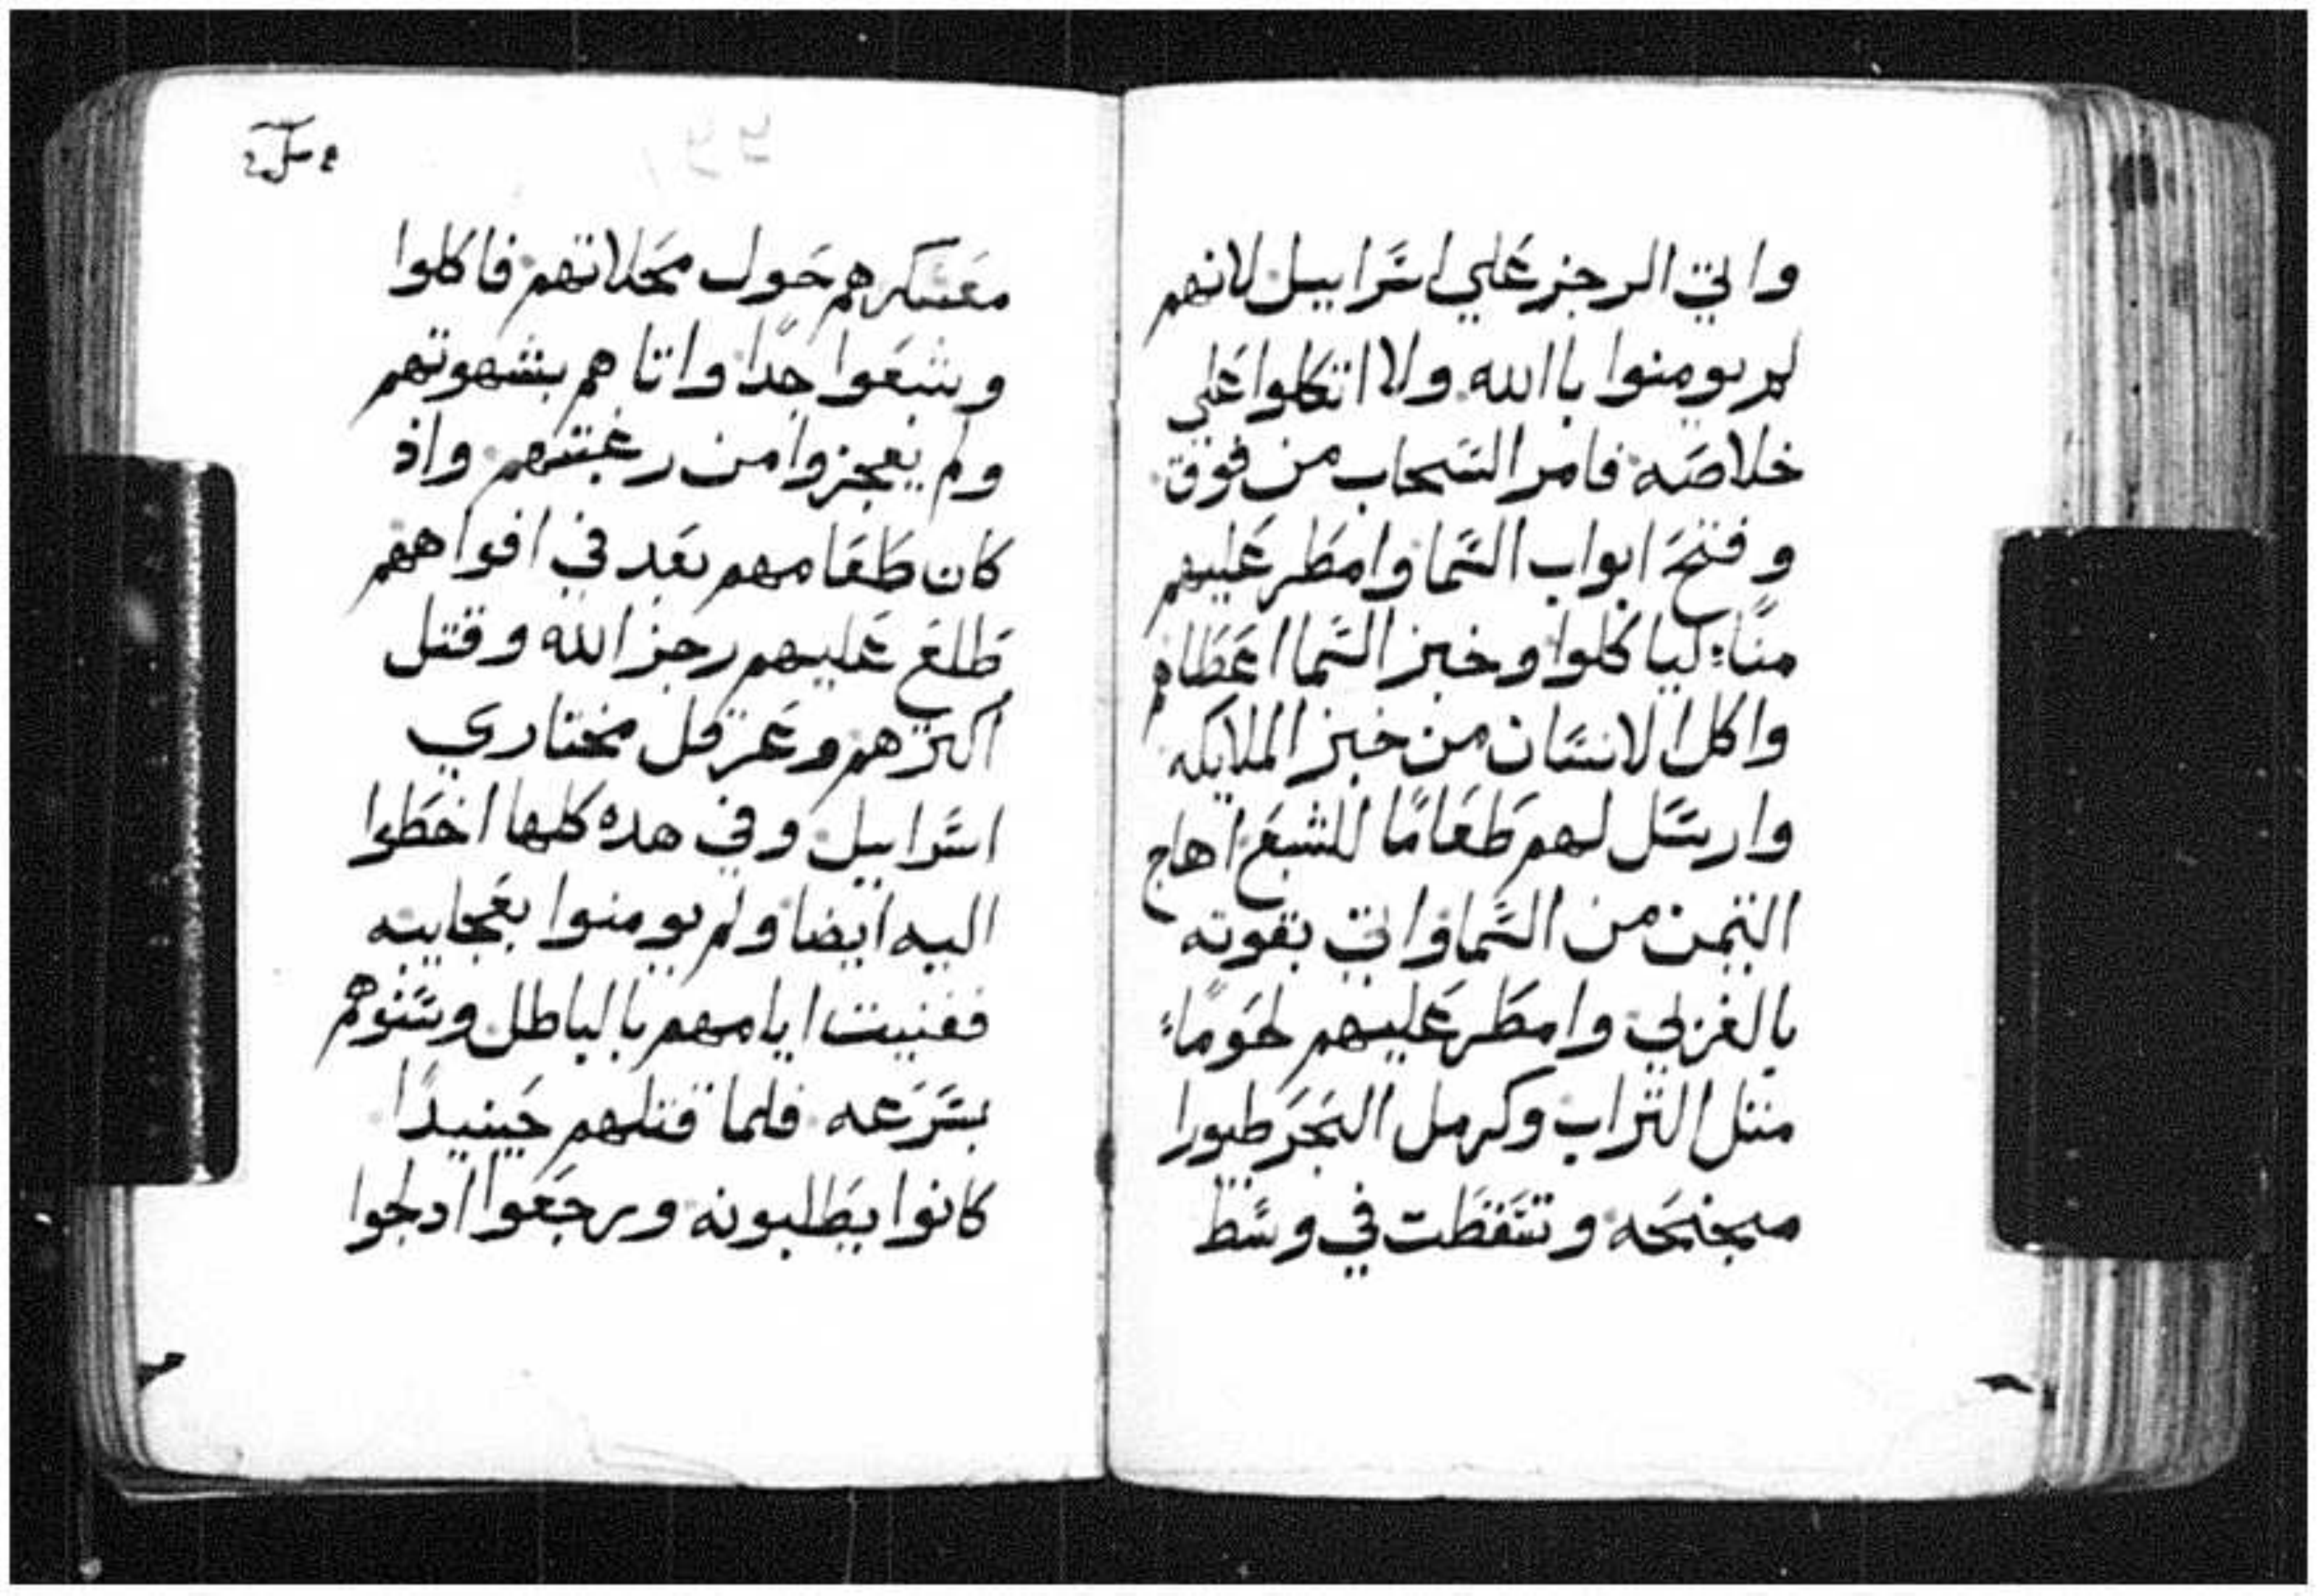 واتي الرجز علي اسراييل لانهم
لم يومنوا باالله ولا اتكلوا علي
خلاصه فامر السحاب من فوق
وفتح ابواب السما وامطر عليهم
منًا لياكلوا وخبز السما اعطاهم
واكل الانسان من خبز الملايكه
وارسل لهم طعامًا للشبع اهاج
التيمن من السما واتي بقوته
بالغربي وامطر عليهم لحومًا
متل التراب وكرمل البحر طيورا
مجنحه وتسقطت في وسط
معسكرهم حول محلاتهم فاكلوا
وشبعوا جدًا واتاهم بشهوتهم
ولم يعجزوا من رغبتهم واذ
كان طعامهم بعد في افواههم
طلع عليهم رجز الله وقتل
اكترهم وعرقل مختاري
اسراييل وفي هده كلها اخطوا
اليه ايضا ولم يومنوا بعجايبه
ففنيت ايامهم بالباطل وسنوهم
بسرعه فلما قتلهم حينيدًا
كانوا يطلبونه ويرجعوا ادلجوا